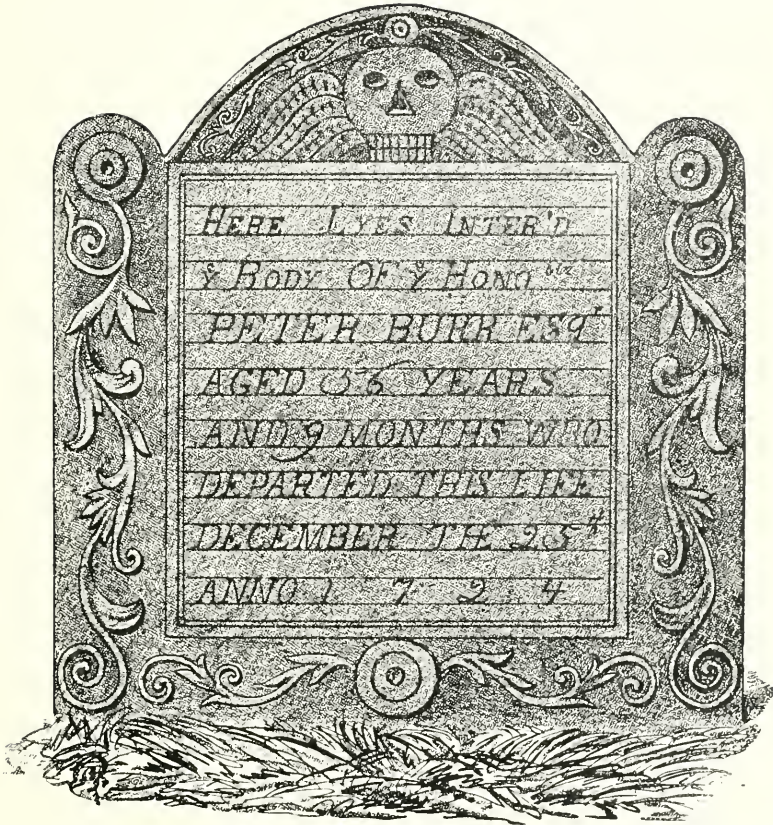 HERE LYES INTER'D
yᵉ BODY OF yᵉ HONOᵇˡᵉ
PETER BURR ESqʳ
AGED 56 YEARS
AND 9 MONTHS WHO
DEPARTED THIS LIFE
DECEMBER THE 25ᵗʰ
ANNO 1 7 2 4